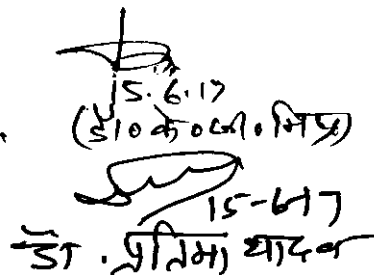 15.6.17
(डॉ० के० जी० मिश्र)
15-6-17
डॉ. प्रतिमा यादव